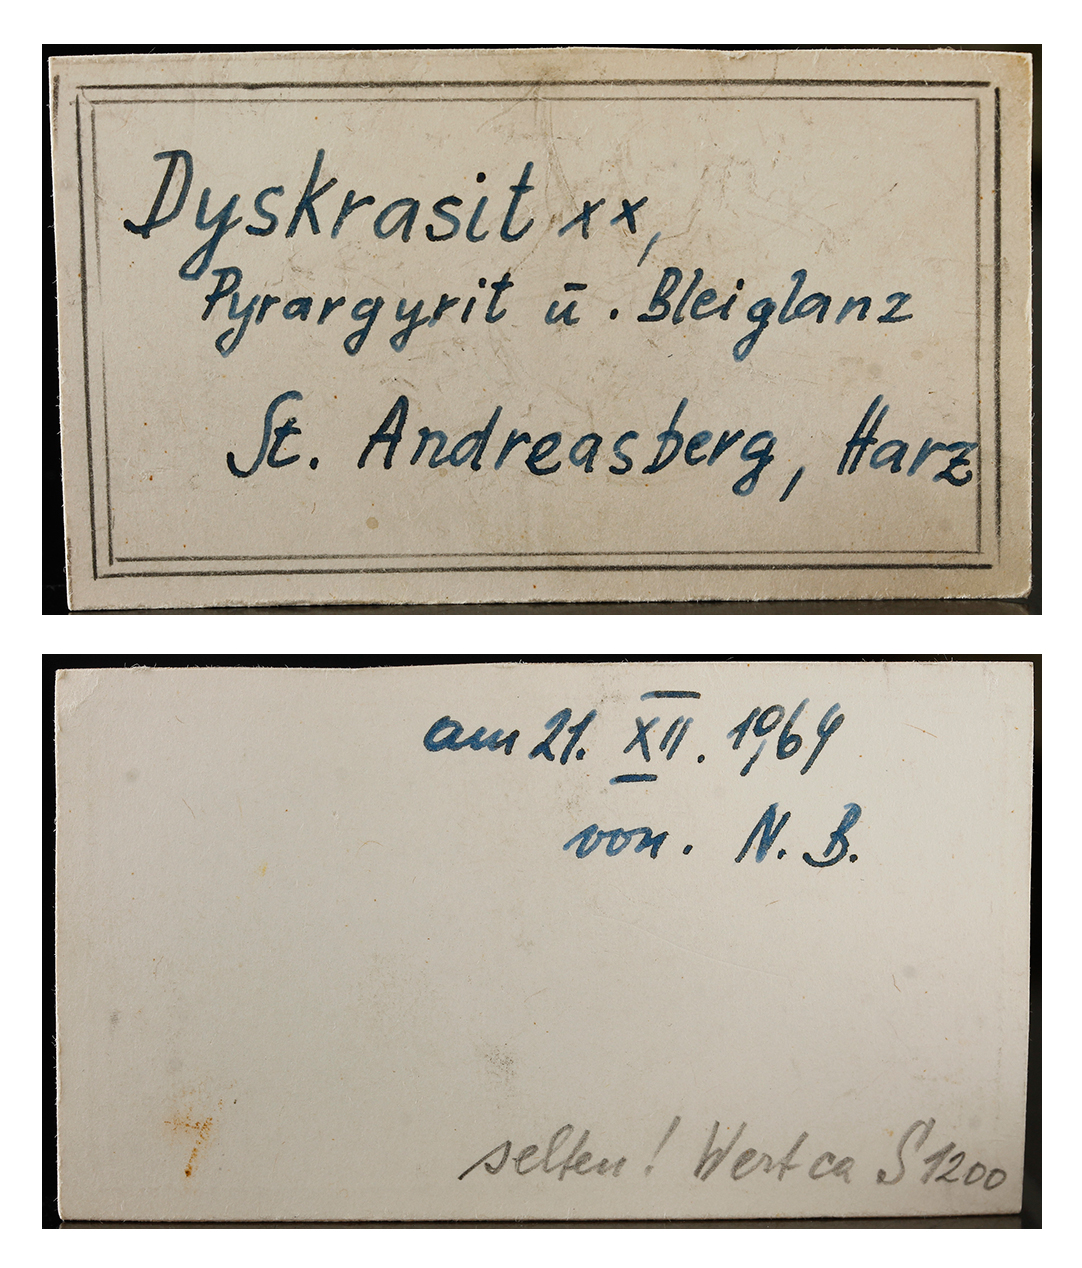 Dyskrasit xx,
Pyrargyrit ū. Bleiglanz
St. Andreasberg, Harz
am 21. XII. 1964
von. N. B.
selten! Wert ca S 1200